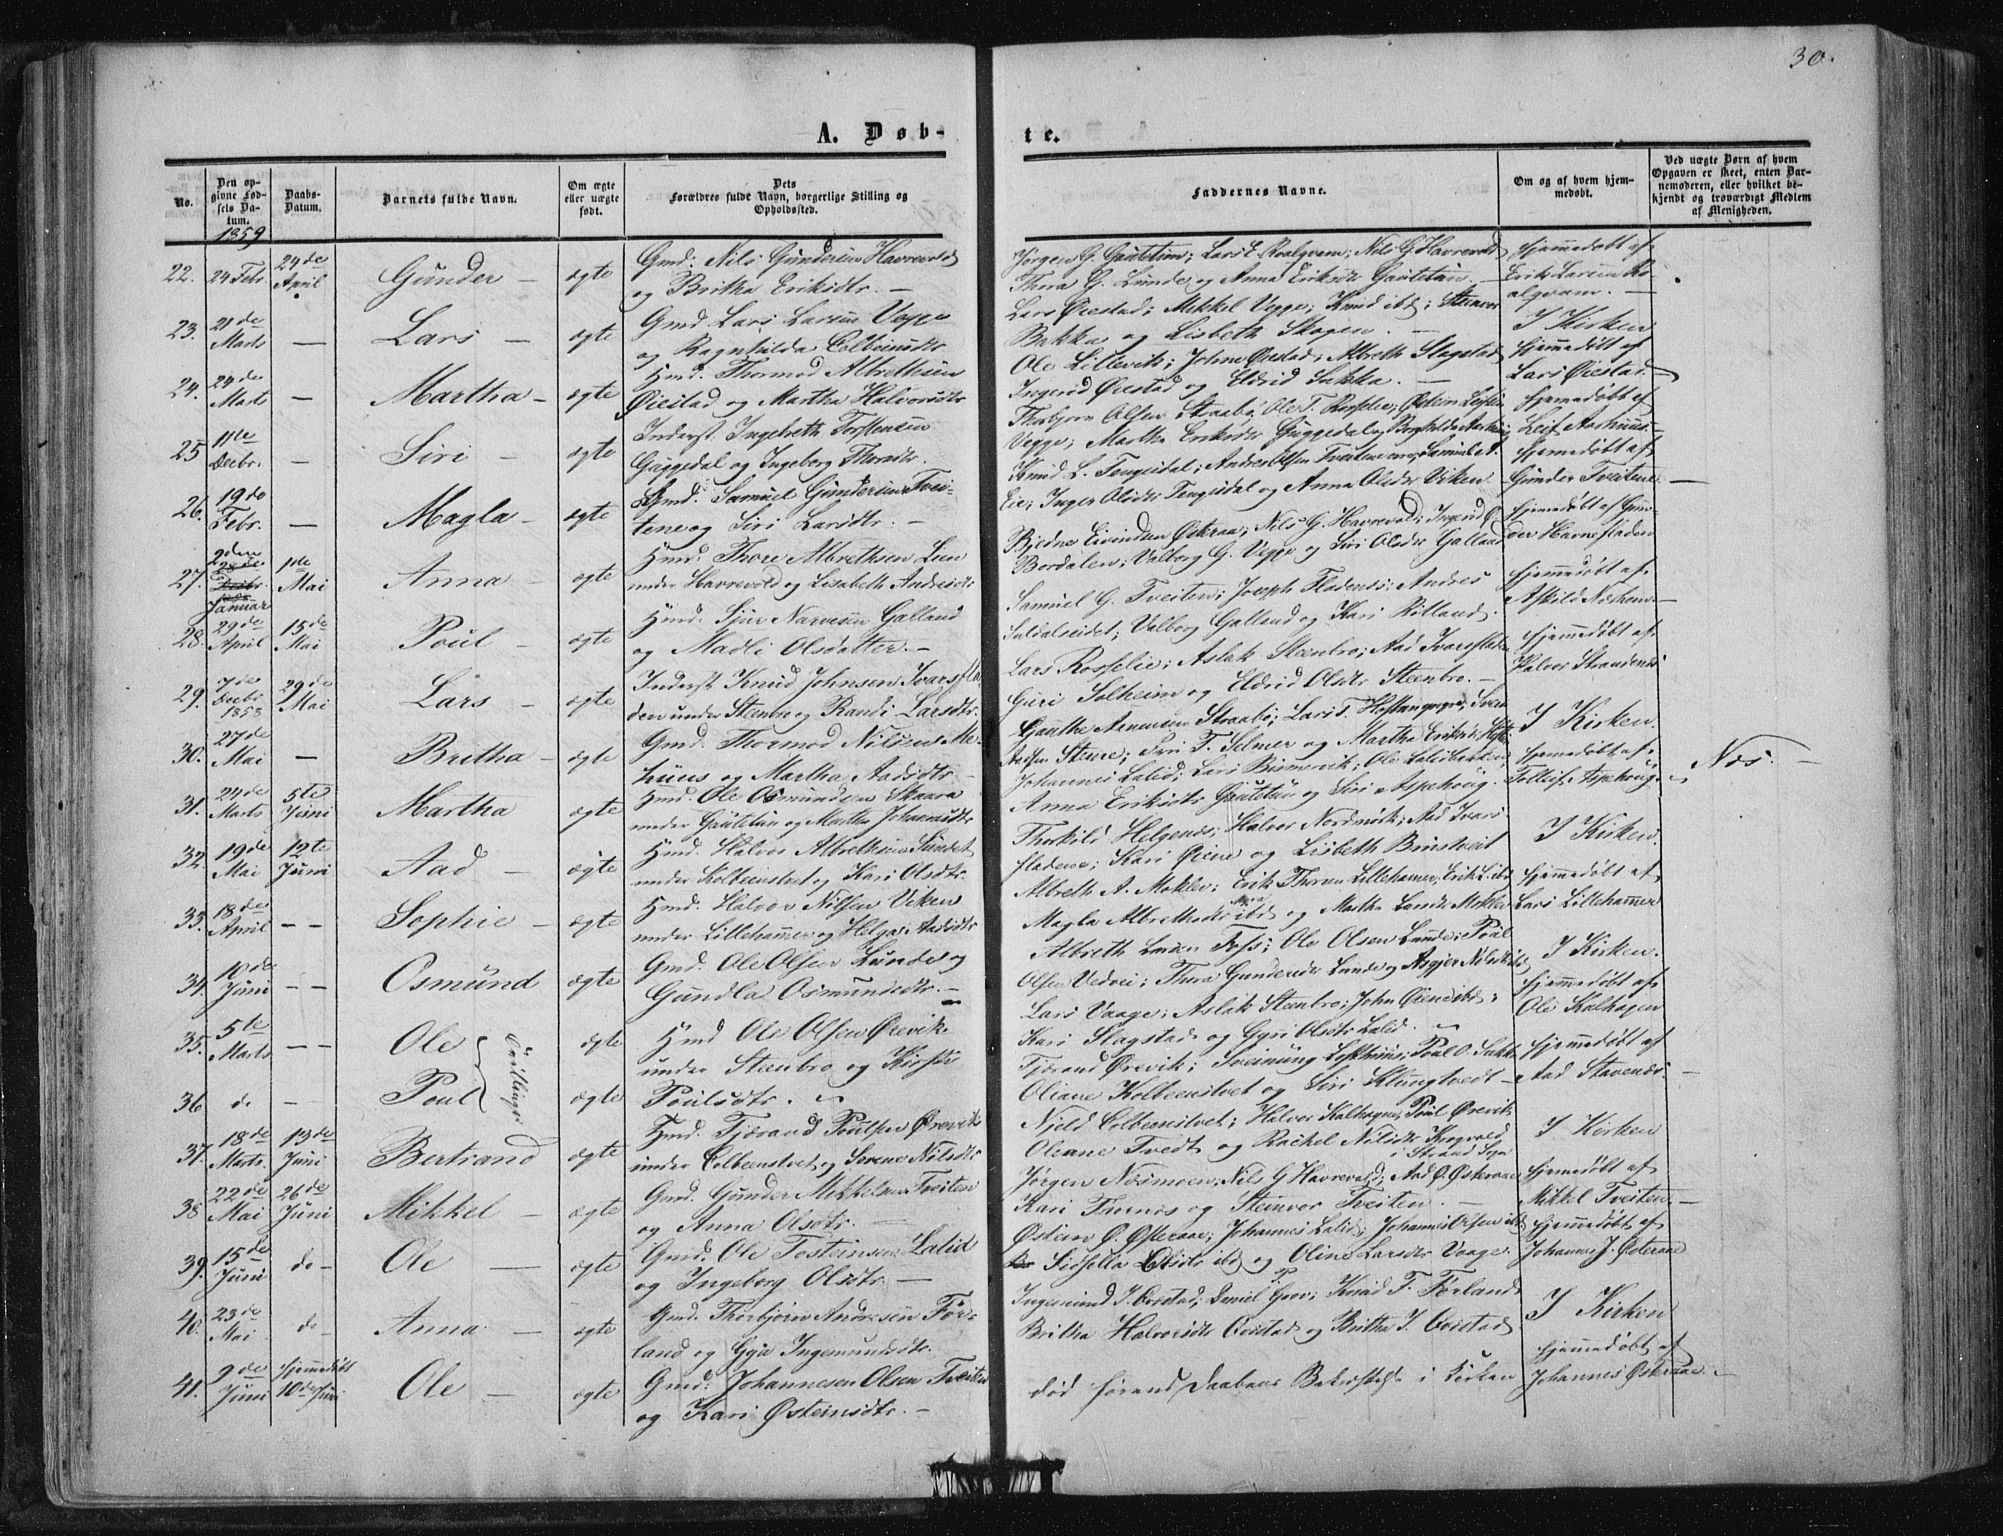 30.
A. Døb-
te.
No.
Den op-
givne Fød-
sels Da-
tum.
Daabs-
Datum.
Barnets fulde Navn.
Om ægte
eller uægte
født.
Dets
Forældres fulde Navn, borgerlige Stilling og
Opholdssted.
Faddernes Navne.
Om og af hvem hjem-
medøbt.
Ved uægte Børn af hvem
Opgaven er skeet, enten Bar-
nemoderen, eller hvilket be-
kjendt og troværdigt Medlem
af Menigheden.
1859
22. 24 Febr. 24de April Gunder – ægte
Gmd. Nils Gundersen Havrevold
og Britha Eriksdtr. –
Jørgen G. Gautetun; Lars E. Roalqvam; Nils G. Havrevold
Thora G. Lunde og Anna Eriksdtr Gautetun –
Hjemmedøbt af
Erik Larsen Ro-
alqvam. –
23. 21de Marts – Lars – ægte
Gmd Lars Larsen Vegge
og Ragnhilda Colbeinsdtr
Lars Øiestad; Mikkel Vegge; Knud ibd; Steinver
Bakka og Lisbeth Skogen. –
I Kirken
24. 24de Marts – Martha – ægte
Hmd. Thormod Albrethsen
Øiestad og Martha Halvorsdtr
Ole Lillevik; John Øiestad; Albreth Slagstad
Ingerid Øiestad og Eldrid Sukka. –
Hjemmedøbt af
Lars Øiestad –
25 11te Decbr. – Siri – ægte
Inderst. Ingebreth Torstensen
Guggedal og Ingeborg Thordtr.
Thorbjørn Olsen Straabø; Ole T. Rosselie; Østein
Vegge; Martha Eriksdtr Guggedal og
Hjemmedøbt af
Leif Aarhuus –
26. 19de Febr. – Magla – ægte
Gmd. Samuel Gundersen Tvei-
tene og Siri Larsdtr. –
Knud L. Tengesdal; Andres Olsen
Eie; Inger Olsdtr Tengesdal og Anna Olsdtr Viken
Hjemmedøbt af
Gunder Tveitene –
27. 2den Januar 1ste Mai Anna – ægte
Hmd. Thore Albrethsen Lien
under Havrevold og Lisabeth Andresdtr
Bjedne Eivindsen Østeraa; Nils G. Havrevold;
Bordalen; Valborg G. Vegge og Siri Olsdtr Galland
Hjemmedøbt af Gun-
der Havrestaden
28. 29de April 15de Mai Poul – ægte
Hmd. Sjur Narvesen Galland
og Madli Olsdatter. –
Samuel G. Tveiten; Joseph Fladenes; Andres
Suldalseidet; Valborg Galland og Kari Rilland.
Hjemmedøbt af
Askild Næsheim –
29. 7de Decbr 1858 29de Mai Lars – ægte
Inderst Knud Johnsen Ivarsfla-
den under Steenbro og Randi Larsdtr.
Lars Rosselie; Aslak Steenbro; Aad Ivarsfladen
Guri Solheim og Eldrid Olsdtr Steenbro. –
Hjemmedøbt af
Halvor Strandenes
30. 27de Mai – Britha – ægte
Gmd. Thormod Nilsen Me-
huus og Martha Aadsdtr –
Gauthe Straabø; Lars T.
og Martha
I Kirken.
31. 24de Marts 5te Juni Martha ægte
Hmd. Ole Osmundsen Skaara
under Gautetun og Martha Johannesdtr
Johannes Lalid; Lars Bismervik; Ole Lalidbakken
Anna Eriksdtr Gautetun og Siri Aspehoug.
Hjemmedøbt af
Tolleif Aspehoug –
Nøs. –
32. 19de Mai 12te Juni Aad – ægte
Hmd. Halvor Albrethsen Sundet
under Kolbeenstvet og Kari Olsdtr.
Thorkild Helgenes; Halvor Nordmork; Aad Ivars-
fladene; Kari Øiene og Lisbeth Brustveit
I Kirken.
33. 18de April – – Sophie – ægte
Hmd. Halvor Nilsen Viken
under Lillehammer og Helga Aadsdtr
Albreth A. Moklev; Erik Thorsen Lillehamer; Erik L. ibd
Magla Albrethsdtr ibd og Martha Moklev
Hjemmedøbt af
Lars Lillehammer
34. 10de Juni – – Osmund ægte
Gmd. Ole Olsen Lunde og
Gundla Osmundsdtr. –
Albreth Larsen Foss; Ole Olsen Lunde; Poul
Olsen Vedvei; Thora Gundersdtr Lunde og Asgjer
I Kirken.
35. 5te Marts – – Ole Tvillinger ægte
Hmd Ole Olsen Ørevik
under Steenbro og Kirsti
Lars Vaage; Aslak Steenbro; John Øiene ibd;
Kari Slagstad og Gyri Olsdtr Lalid.
Hjemmedøbt af
Ole Kalhagen
36 do – Poul ægte
Poulsdtr. –
Tjerand Ørevik; Sveinung; Poul O. Sukka
Oliane Kolbeenstvet og Siri Klungtvedt –
Hjemmedøbt af
Aad Stavenes. –
37. 18de Marts. 13de Juni Bertrand ægte
Hmd. Tjerand Poulsen Ørevik
under Colbeenstvet og Serene Nilsdtr
Njeld Colbeenstvet; Halvor Kalhagen; Poul Ørevik
Oleane Tvedt og Rachel Nilsdtr Krogvold
i Strand Sgn
I Kirken
38 22de Mai 26de Juni Mikkel – ægte
Gmd. Gunder Mikkelsen Tveiten
og Anna Olsdtr. –
Jørgen Næsmoen; Nils G Havrevold; Aad Ø. Østeraae
Kari Thornes og Steinver Tveiten. –
Hjemmedøbt af
Mikkel Tveiten. –
39. 15de Juni do – Ole – ægte
Gmd. Ole Tosteinsen Lalid
og Ingeborg Olsdtr. –
Østein Ø. Østeraae; Johannes Lalid; Johannes Olsen ibd
Sidsella Olsdtr ibd og Oline Larsdtr Vaage.
Hjemmedøbt af
Johannes J. Østeraae
40. 23de Mai do – Anna – ægte
Gmd. Thorbjørn Andresen Før-
land og Gya Ingemundsdtr.
Ingemund I. Qvistad; Daniel Grov; Knud T. Førland
Britha Halvorsdtr Qvistad og Britha I. Qvistad
I Kirken
41. 9de Juni Hjemmedøbt 10de Juni Ole – ægte
Gmd: Johannesen Olsen Tveiten
og Kari Østeinsdtr. –
død førend Daabens Bekræftelse i Kirken
Hjemmedøbt af
Johannes Østeraae. –